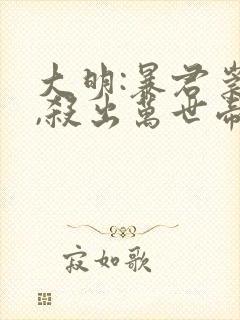 大明:暴君崇
,殺出萬世帝
寂如歌